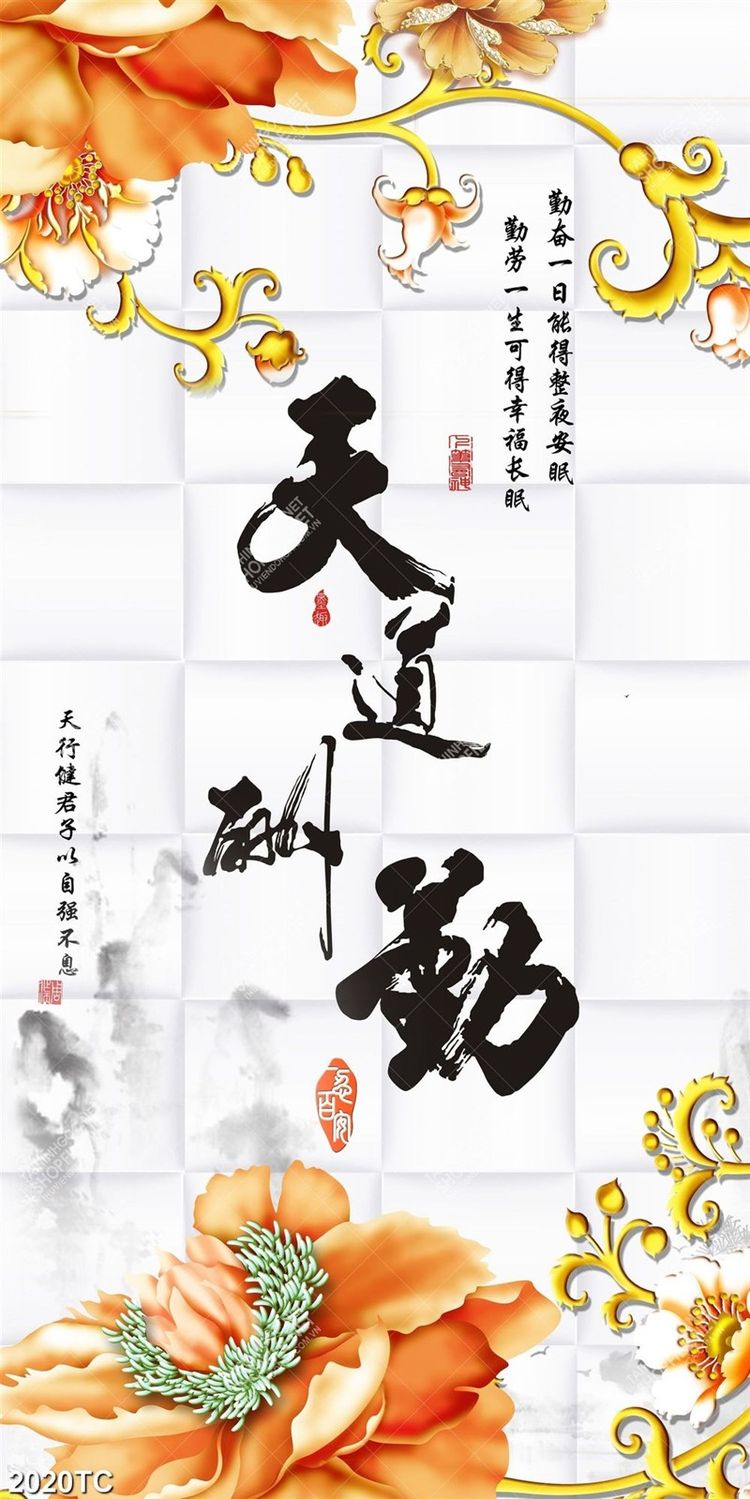 勤奋一日能得整夜安眠
勤劳一生可得幸福长眠
天道酬勤
天行健君子以自强不息
百忍安
2020TC